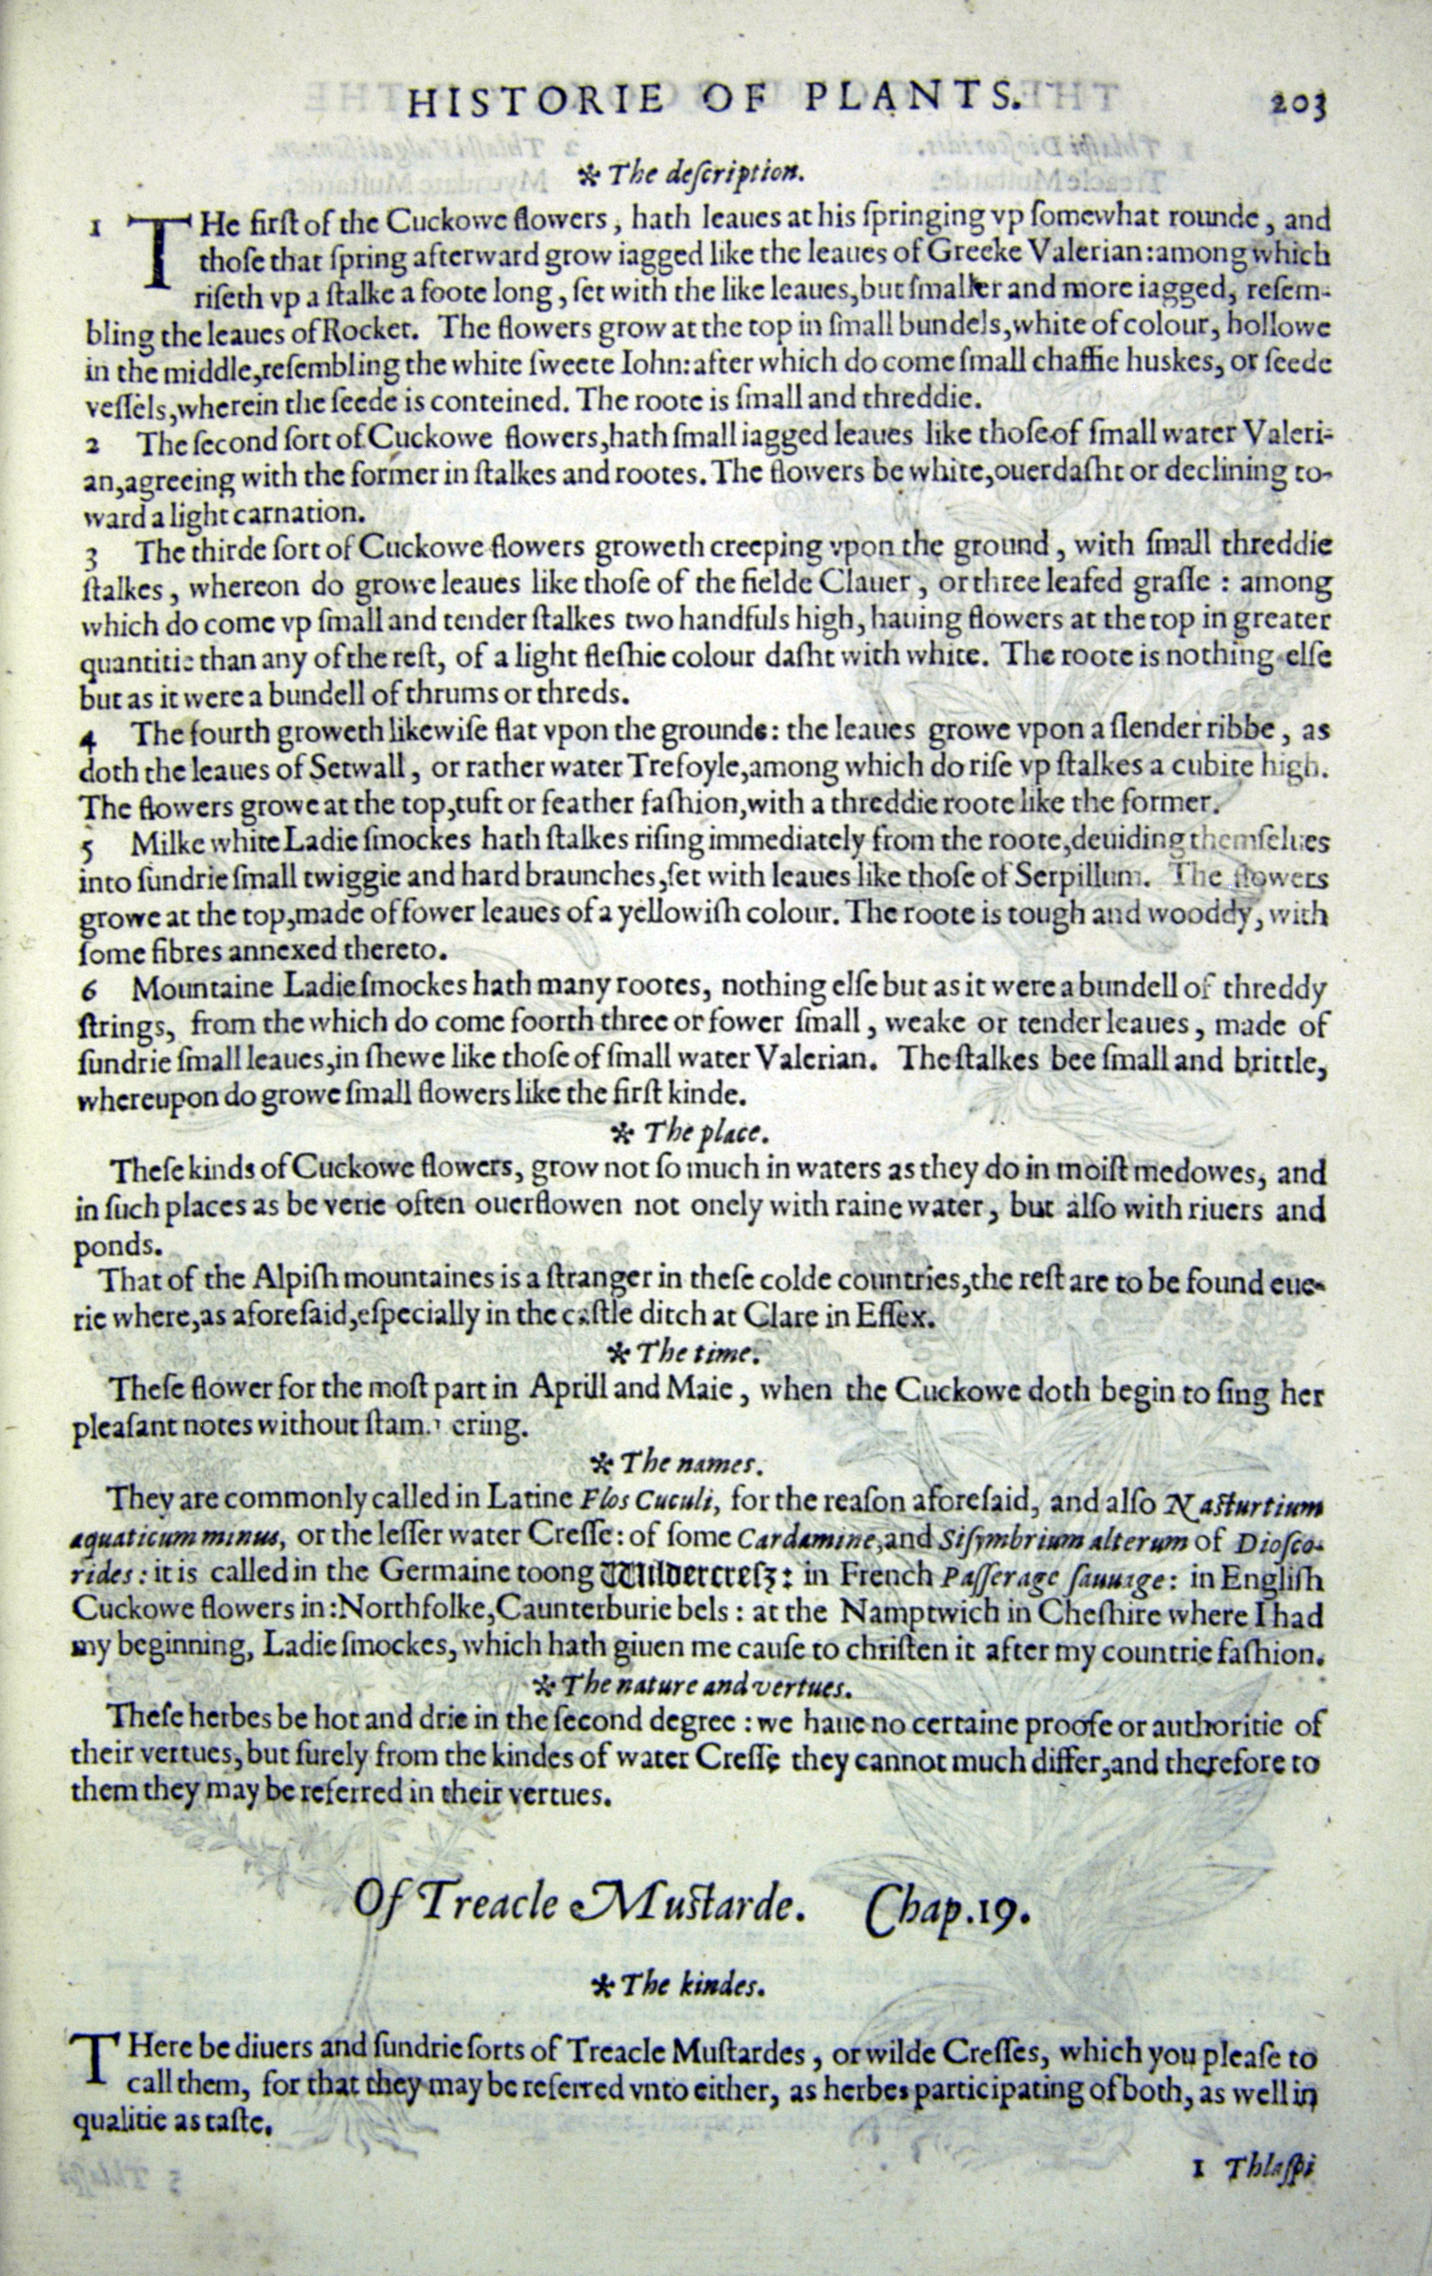 HISTORIE OF PLANTS. 203
✲ The deſcription.
1 THe firſt of the Cuckowe flowers, hath leaues at his ſpringing vp ſomewhat rounde, and
thoſe that ſpring afterward grow iagged like the leaues of Greeke Valerian: among which
riſeth vp a ſtalke a foote long, ſet with the like leaues, but ſmaller and more iagged, reſem-
bling the leaues of Rocket. The flowers grow at the top in ſmall bundels, white of colour, hollowe
in the middle, reſembling the white ſweete Iohn: after which do come ſmall chaffie huskes, or ſeede
veſſels, wherein the ſeede is conteined. The roote is ſmall and threddie.
2 The ſecond ſort of Cuckowe flowers, hath ſmall iagged leaues like thoſe of ſmall water Valeri-
an, agreeing with the former in ſtalkes and rootes. The flowers be white, ouerdaſht or declining to-
ward a light carnation.
3 The thirde ſort of Cuckowe flowers groweth creeping vpon the ground, with ſmall threddie
ſtalkes, whereon do growe leaues like thoſe of the fielde Clauer, or three leafed graſſe: among
which do come vp ſmall and tender ſtalkes two handfuls high, hauing flowers at the top in greater
quantitie than any of the reſt, of a light fleſhie colour daſht with white. The roote is nothing elſe
but as it were a bundell of thrums or threds.
4 The fourth groweth likewiſe flat vpon the grounde: the leaues growe vpon a ſlender ribbe, as
doth the leaues of Setwall, or rather water Trefoyle, among which do riſe vp ſtalkes a cubite high.
The flowers growe at the top, tuft or feather faſhion, with a threddie roote like the former.
5 Milke white Ladie ſmockes hath ſtalkes riſing immediately from the roote, deuiding themſelues
into ſundrie ſmall twiggie and hard braunches, ſet with leaues like thoſe of Serpillum. The flowers
growe at the top, made of fower leaues of a yellowiſh colour. The roote is tough and wooddy, with
ſome fibres annexed thereto.
6 Mountaine Ladieſmockes hath many rootes, nothing elſe but as it were a bundell of threddy
ſtrings, from the which do come foorth three or fower ſmall, weake or tender leaues, made of
ſundrie ſmall leaues, in ſhewe like thoſe of ſmall water Valerian. The ſtalkes bee ſmall and brittle,
whereupon do growe ſmall flowers like the firſt kinde.
✲ The place.
Theſe kinds of Cuckowe flowers, grow not ſo much in waters as they do in moiſt medowes, and
in ſuch places as be verie often ouerflowen not onely with raine water, but alſo with riuers and
ponds.
That of the Alpiſh mountaines is a ſtranger in theſe colde countries, the reſt are to be found eue-
rie where, as aforeſaid, eſpecially in the caſtle ditch at Clare in Eſſex.
✲ The time.
Theſe flower for the moſt part in Aprill and Maie, when the Cuckowe doth begin to ſing her
pleaſant notes without ſtammering.
✲ The names.
They are commonly called in Latine Flos Cuculi, for the reaſon aforeſaid, and alſo Naſturtium
aquaticum minus, or the leſſer water Creſſe: of ſome Cardamine, and Siſymbrium alterum of Dioſco-
rides: it is called in the Germaine toong Wildercreſz: in French Paſſerage ſauuage: in Engliſh
Cuckowe flowers in: Northfolke, Caunterburie bels: at the Namptwich in Cheſhire where I had
my beginning, Ladie ſmockes, which hath giuen me cauſe to chriſten it after my countrie faſhion.
✲ The nature and vertues.
Theſe herbes be hot and drie in the ſecond degree: we haue no certaine proofe or authoritie of
their vertues, but ſurely from the kindes of water Creſſe they cannot much differ, and therefore to
them they may be referred in their vertues.
Of Treacle Muſtarde. Chap. 19.
✲ The kindes.
THere be diuers and ſundrie ſorts of Treacle Muſtardes, or wilde Creſſes, which you pleaſe to
call them, for that they may be referred vnto either, as herbes participating of both, as well in
qualitie as taſte.
1 Thlaſpi